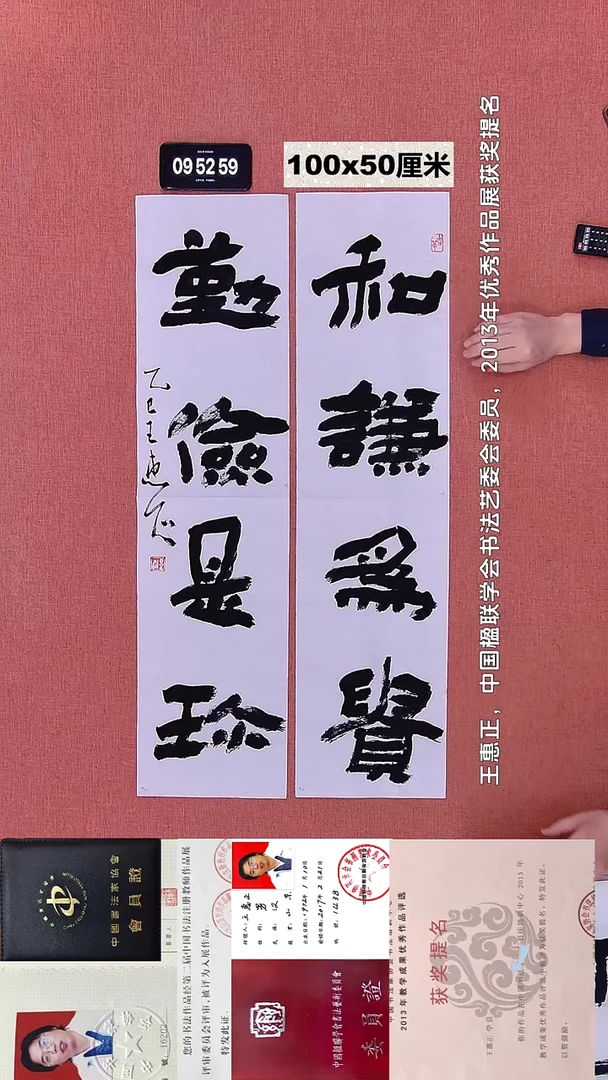 09 52 59
100x50厘米
和謙爲貴
勤儉是珍
乙巳王惠正
王惠正，中国楹联学会书法艺委会委员，2013年优秀作品展获奖提名
中國書法家協會
會員證
您的书法作品经第二届中国书法注册教师作品展
评审委员会评审，被评为入展作品。
特发此证。
中國楹聯學會書法藝術委員會
委員證
2013 年教学成果优秀作品评选
获奖提名
王惠正 学员